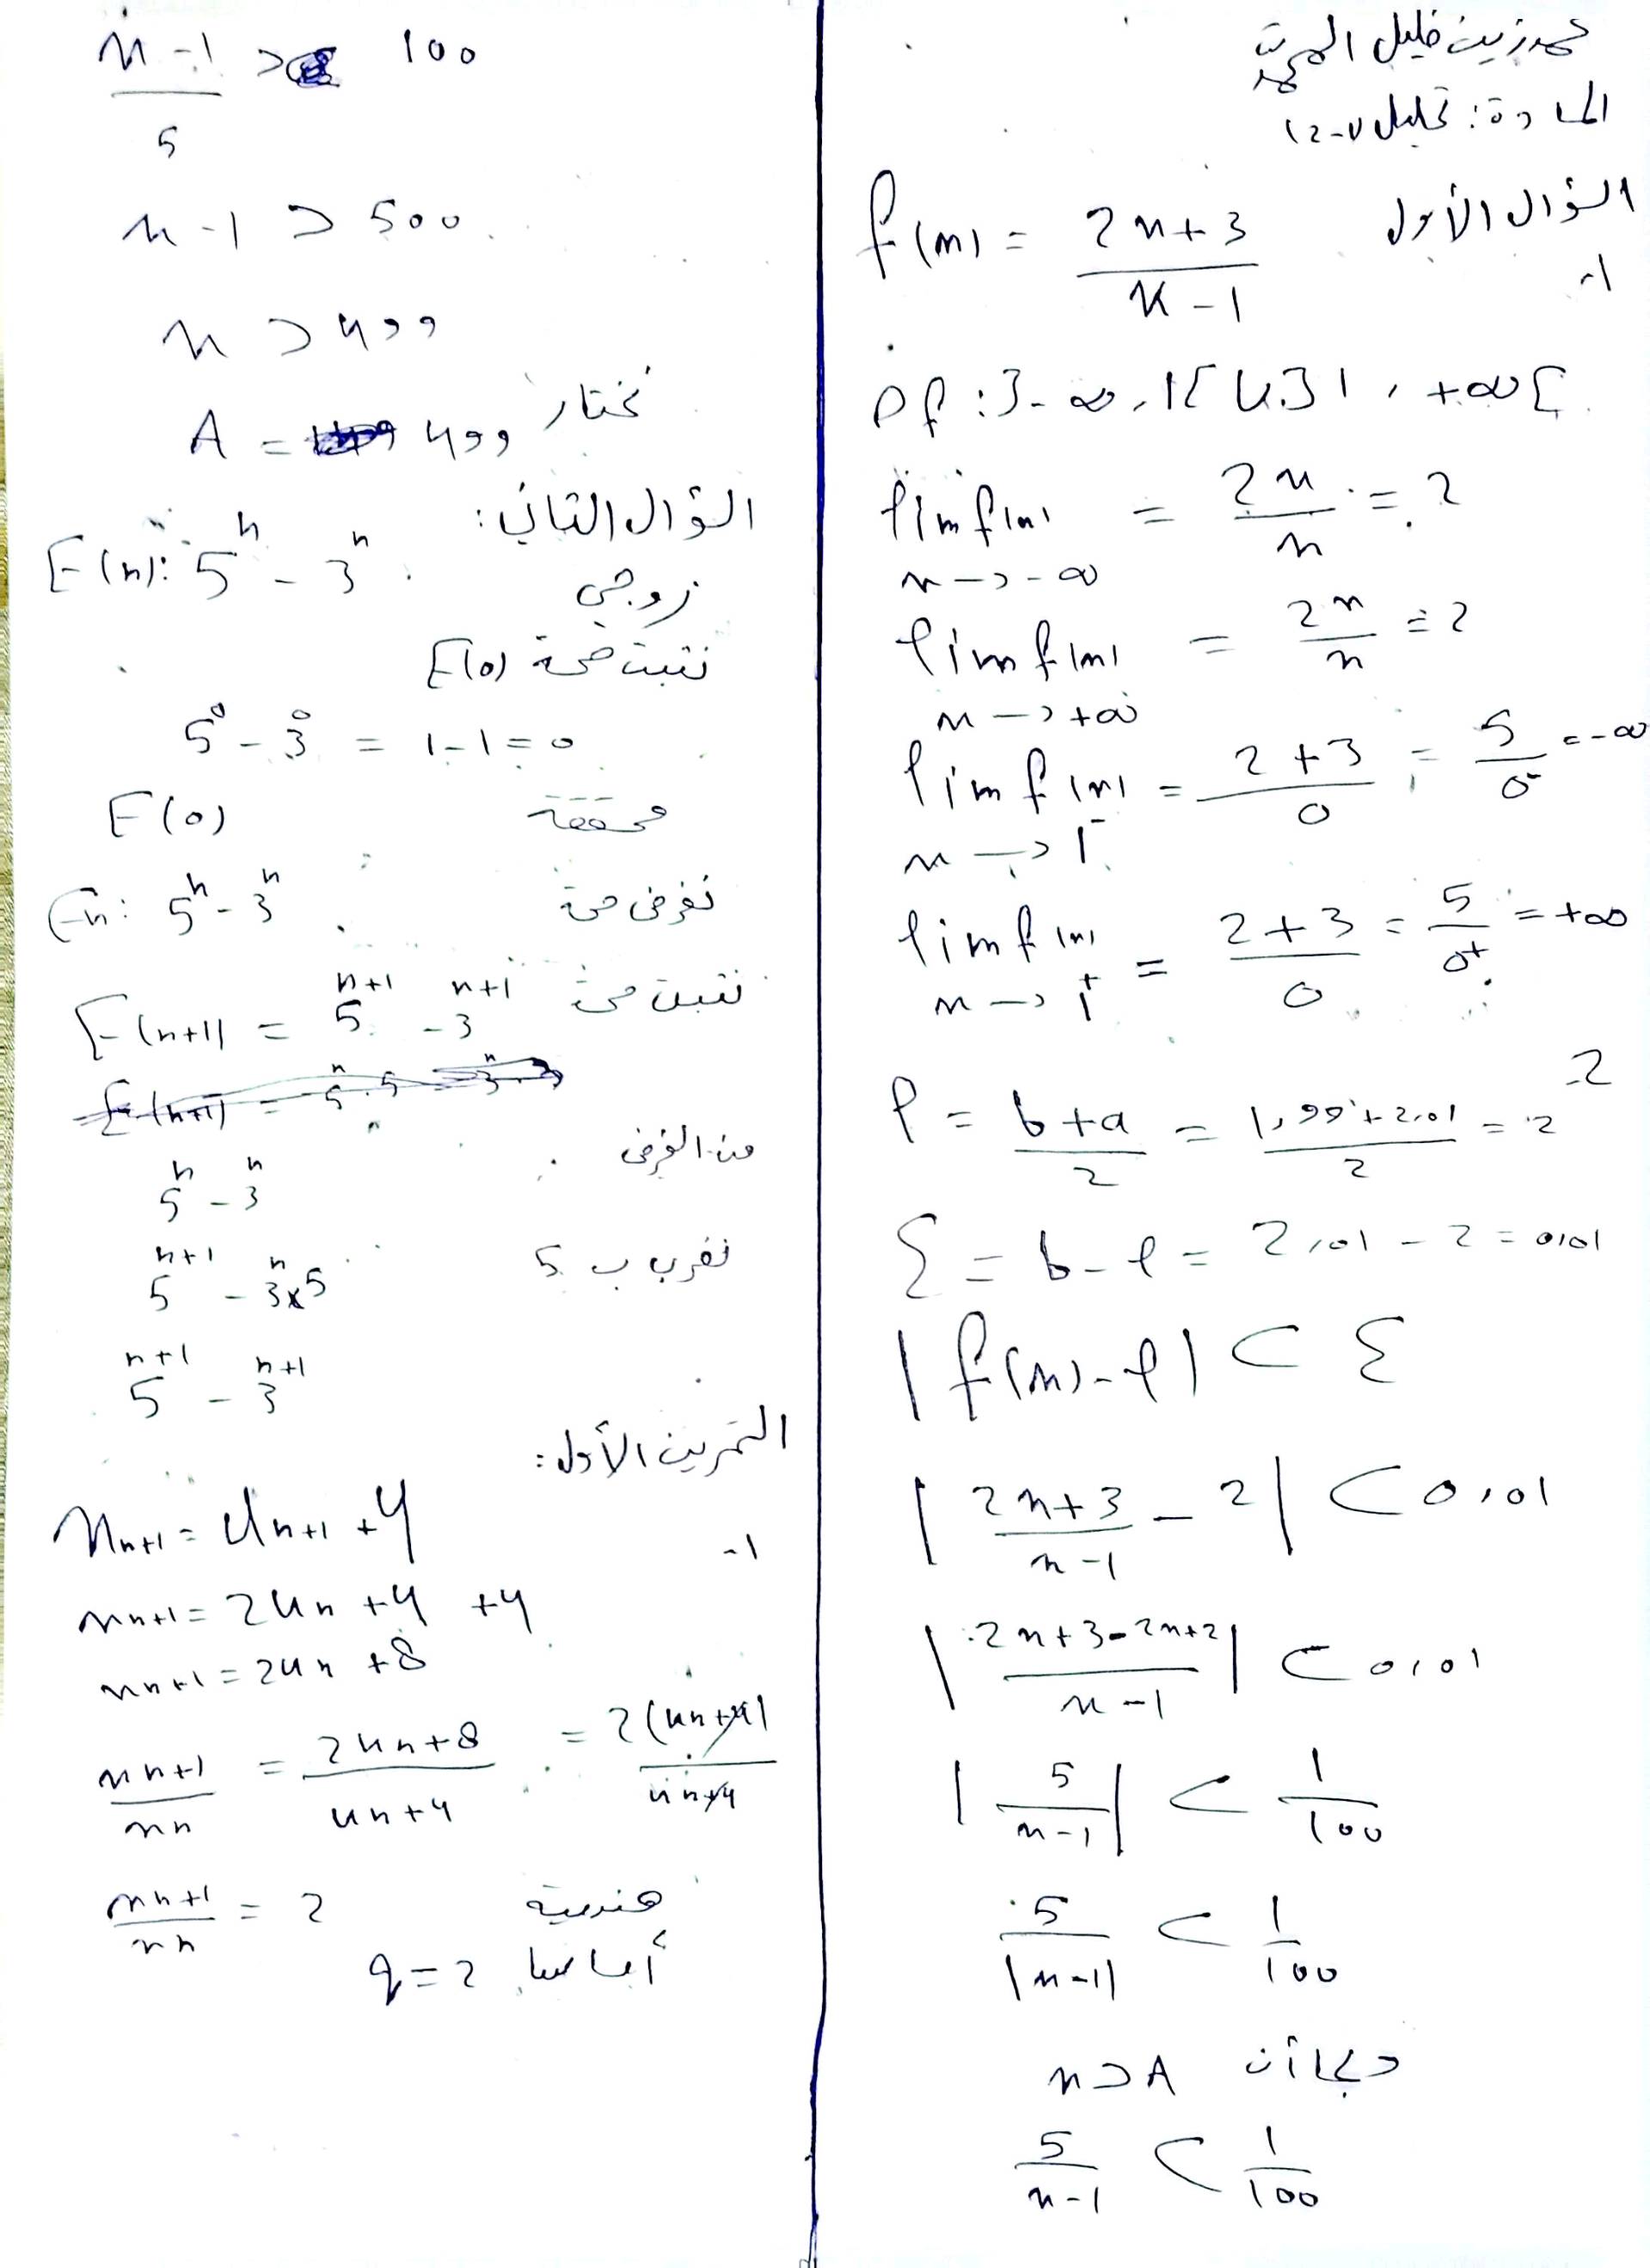 المادة: تحليل
السؤال الأول
1-
f(x) = \frac{2x+3}{x-1}
Df : ]-∞, 1[ ∪ ]1, +∞[
lim f(x) = \frac{2x}{x} = 2
x → -∞
lim f(x) = \frac{2x}{x} = 2
x → +∞
lim f(x) = \frac{2+3}{0} = \frac{5}{0^-} = -∞
x → 1^-
lim f(x) = \frac{2+3}{0} = \frac{5}{0^+} = +∞
x → 1^+
2-
ℓ = \frac{b+a}{2} = \frac{1,99+2,01}{2} = 2
ε = b-ℓ = 2,01 - 2 = 0,01
|f(x)-ℓ| < ε
|\frac{2x+3}{x-1} - 2| < 0,01
|\frac{2x+3-2x+2}{x-1}| < 0,01
|\frac{5}{x-1}| < \frac{1}{100}
\frac{5}{|x-1|} < \frac{1}{100}
وبما أن x > A
\frac{5}{x-1} < \frac{1}{100}
\frac{x-1}{5} > 100
x-1 > 500
x > 499
نختار A = 499
السؤال الثاني:
E(n): 5^n - 3^n زوجي
نثبت صحة E(0)
5^0 - 3^0 = 1-1 = 0
E(0) محققة
نفرض صحة En: 5^n - 3^n
نثبت صحة E(n+1) = 5^{n+1} - 3^{n+1}
من الفرض
5^n - 3^n
نضرب ب 5
5^{n+1} - 3^n×5
5^{n+1} - 3^{n+1}
التمرين الأول:
1- x_{n+1} = u_{n+1} + 4
x_{n+1} = 2u_n + 4 + 4
x_{n+1} = 2u_n + 8
\frac{x_{n+1}}{x_n} = \frac{2u_n+8}{u_n+4} = \frac{2(u_n+4)}{u_n+4}
\frac{x_{n+1}}{x_n} = 2 هندسية
أساسها q = 2